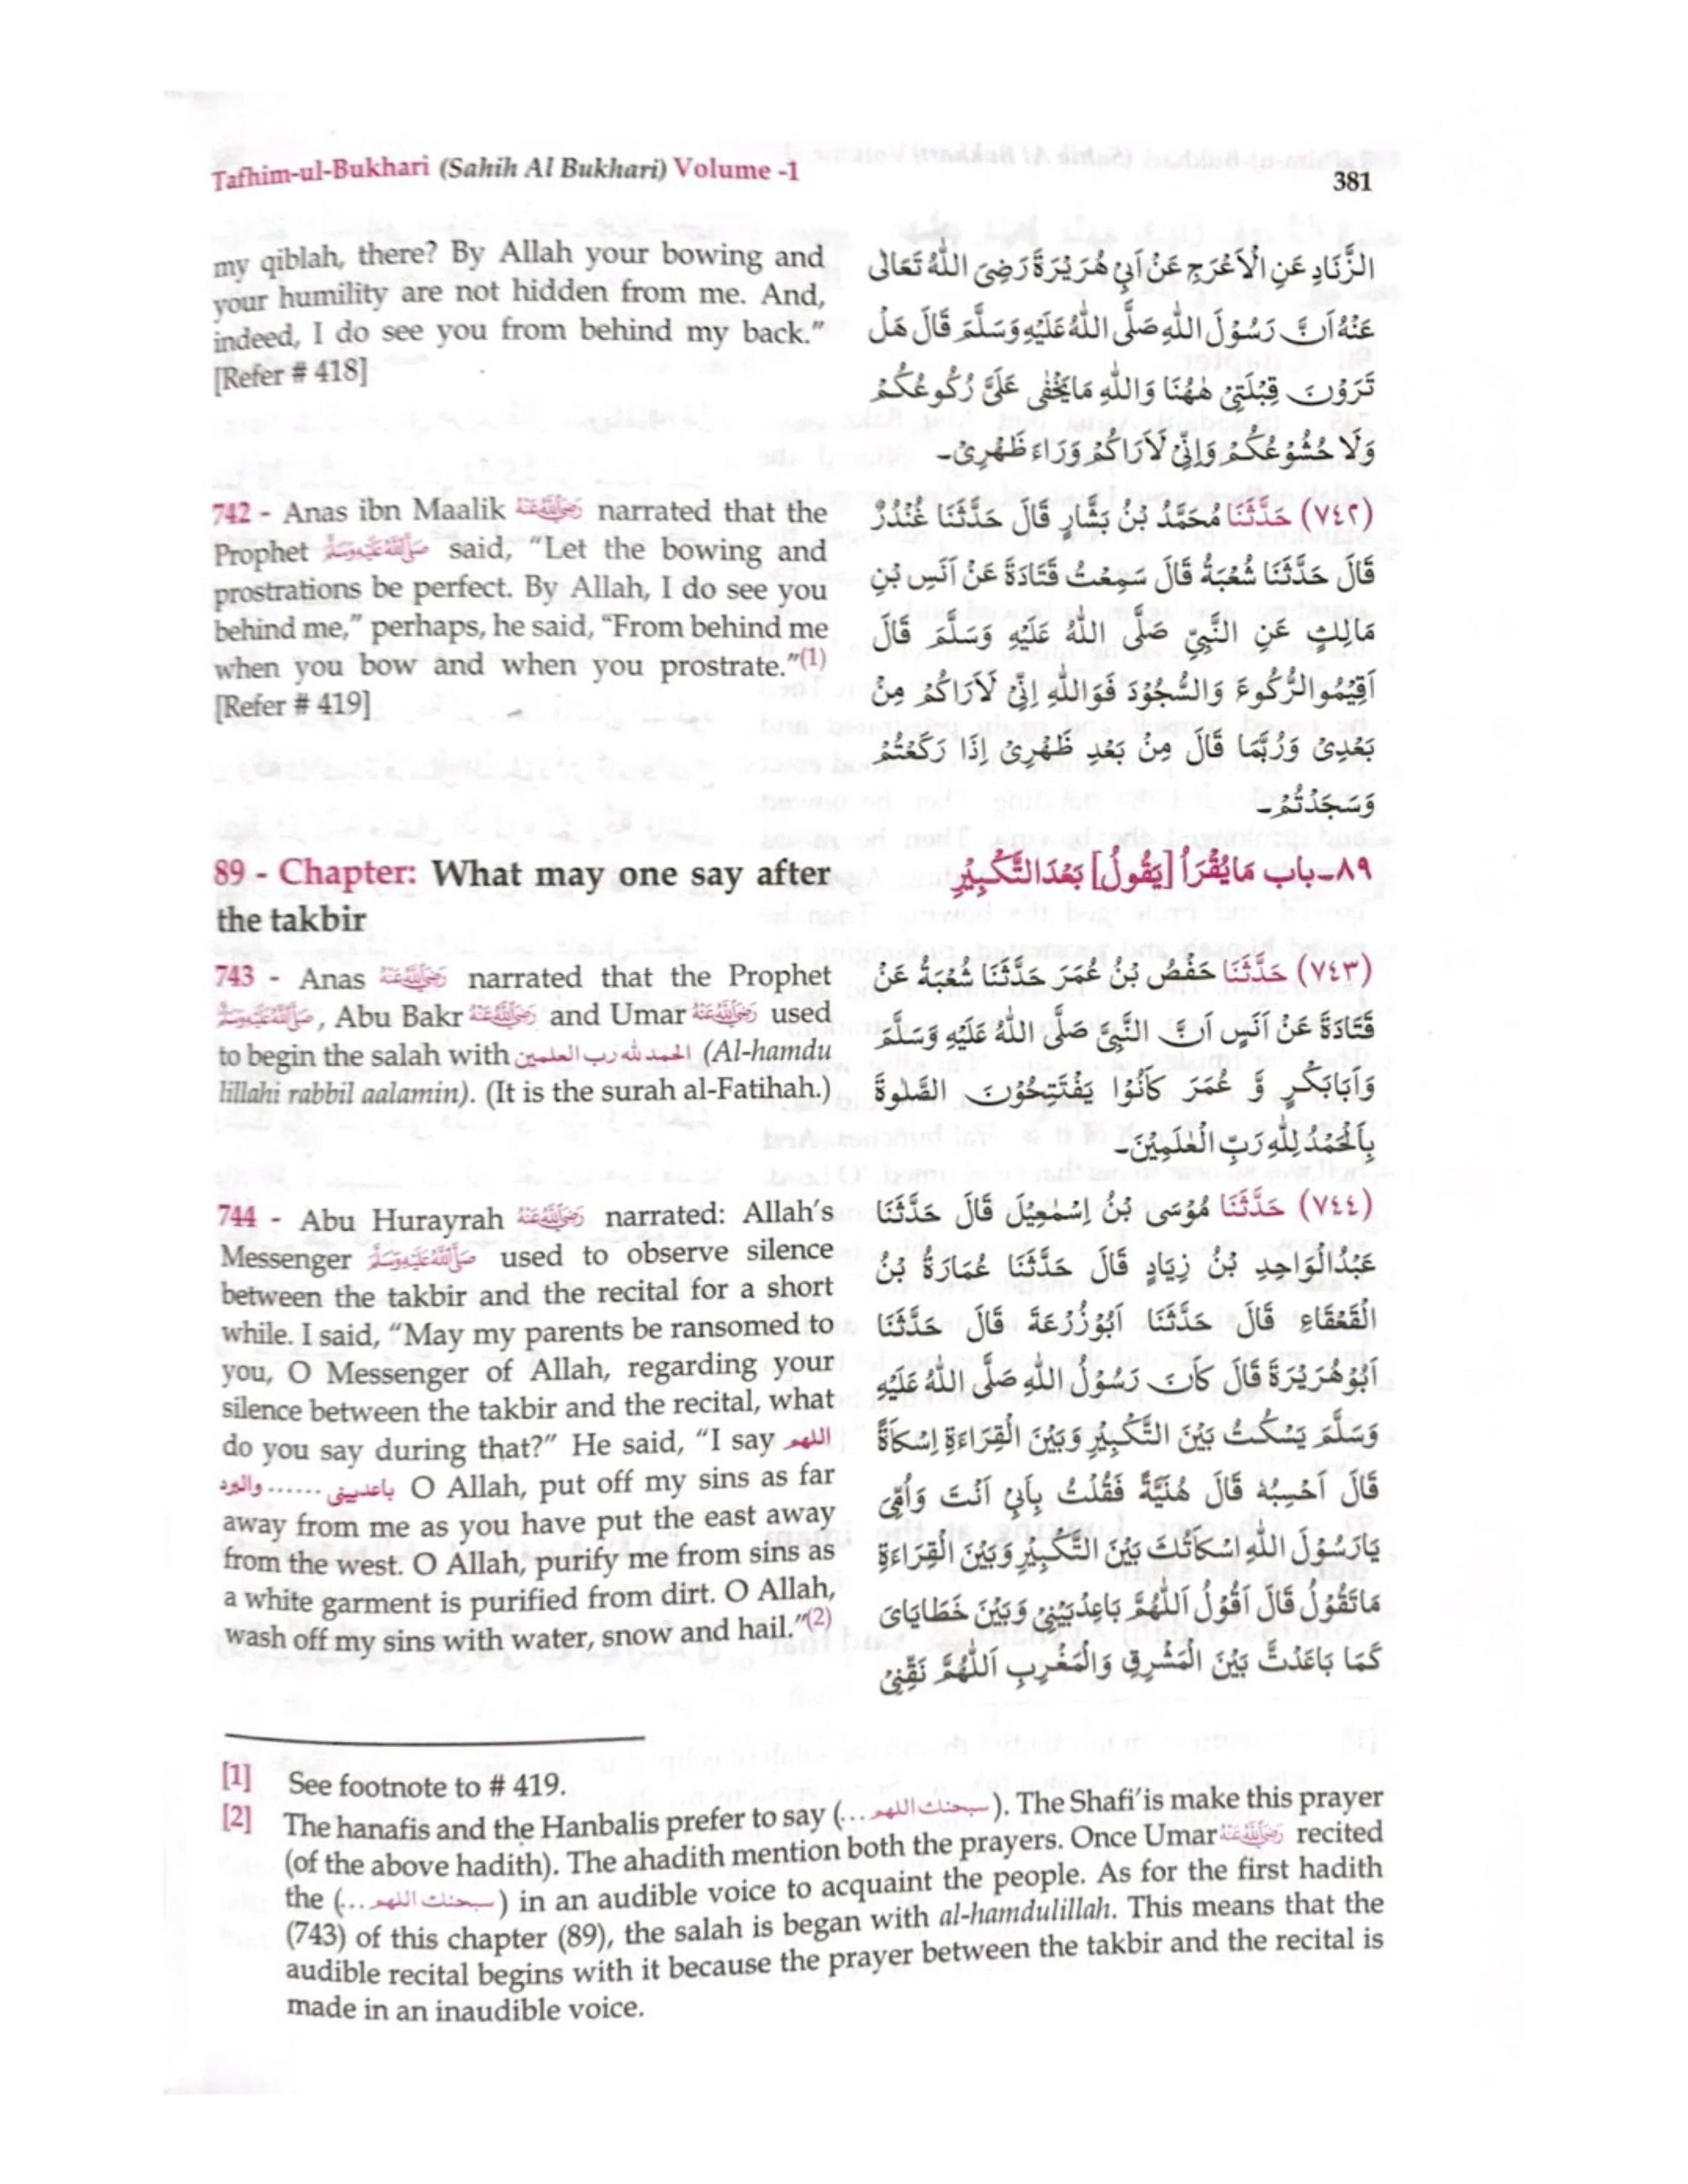 Tafhim-ul-Bukhari (Sahih Al Bukhari) Volume -1
381
my qiblah, there? By Allah your bowing and
your humility are not hidden from me. And,
indeed, I do see you from behind my back.”
[Refer # 418]
742 - Anas ibn Maalik رضي الله عنه narrated that the
Prophet صلى الله عليه وسلم said, “Let the bowing and
prostrations be perfect. By Allah, I do see you
behind me,” perhaps, he said, “From behind me
when you bow and when you prostrate.”(1)
[Refer # 419]
89 - Chapter: What may one say after
the takbir
743 - Anas رضي الله عنه narrated that the Prophet
صلى الله عليه وسلم, Abu Bakr رضي الله عنه and Umar رضي الله عنه used
to begin the salah with الحمد لله رب العلمين (Al-hamdu
lillahi rabbil aalamin). (It is the surah al-Fatihah.)
744 - Abu Hurayrah رضي الله عنه narrated: Allah’s
Messenger صلى الله عليه وسلم used to observe silence
between the takbir and the recital for a short
while. I said, “May my parents be ransomed to
you, O Messenger of Allah, regarding your
silence between the takbir and the recital, what
do you say during that?” He said, “I say اللهم
باعدبيني ...... والبرد O Allah, put off my sins as far
away from me as you have put the east away
from the west. O Allah, purify me from sins as
a white garment is purified from dirt. O Allah,
wash off my sins with water, snow and hail.”(2)
الزِّنَادِ عَنِ الْاَعْرَجِ عَنْ اَبِىْ هُرَيْرَةَ رَضِىَ اللّٰهُ تَعَالٰى
عَنْهُ اَنَّ رَسُوْلَ اللّٰهِ صَلَّى اللّٰهُ عَلَيْهِ وَسَلَّمَ قَالَ هَلْ
تَرَوْنَ قِبْلَتِىْ هٰهُنَا وَاللّٰهِ مَايَخْفٰى عَلَىَّ رُكُوعُكُمْ
وَلَا خُشُوْعُكُمْ وَاِنِّىْ لَاَرَاكُمْ وَرَاءَ ظَهْرِىْ۔
(٧٤٢) حَدَّثَنَا مُحَمَّدُ بْنُ بَشَّارٍ قَالَ حَدَّثَنَا غُنْدُرٌ
قَالَ حَدَّثَنَا شُعْبَةُ قَالَ سَمِعْتُ قَتَادَةَ عَنْ اَنَسِ بْنِ
مَالِكٍ عَنِ النَّبِىِّ صَلَّى اللّٰهُ عَلَيْهِ وَسَلَّمَ قَالَ
اَقِيْمُوالرُّكُوعَ وَالسُّجُوْدَ فَوَاللّٰهِ اِنِّىْ لَاَرَاكُمْ مِنْ
بَعْدِىْ وَرُبَّمَا قَالَ مِنْ بَعْدِ ظَهْرِىْ اِذَا رَكَعْتُمْ
وَسَجَدْتُمْ۔
٨٩۔باب مَايُقْرَاُ [يَقُولُ] بَعْدَ التَّكْبِيْرِ
(٧٤٣) حَدَّثَنَا حَفْصُ بْنُ عُمَرَ حَدَّثَنَا شُعْبَةُ عَنْ
قَتَادَةَ عَنْ اَنَسٍ اَنَّ النَّبِىَّ صَلَّى اللّٰهُ عَلَيْهِ وَسَلَّمَ
وَاَبَابَكْرٍ وَّ عُمَرَ كَانُوْا يَفْتَتِحُوْنَ الصَّلٰوةَ
بِالْحَمْدُ لِلّٰهِ رَبِّ الْعٰلَمِيْنَ۔
(٧٤٤) حَدَّثَنَا مُوْسَى بْنُ اِسْمٰعِيْلَ قَالَ حَدَّثَنَا
عَبْدُالْوَاحِدِ بْنُ زِيَادٍ قَالَ حَدَّثَنَا عُمَارَةُ بْنُ
الْقَعْقَاعِ قَالَ حَدَّثَنَا اَبُوْزُرْعَةَ قَالَ حَدَّثَنَا
اَبُوْهُرَيْرَةَ قَالَ كَانَ رَسُوْلُ اللّٰهِ صَلَّى اللّٰهُ عَلَيْهِ
وَسَلَّمَ يَسْكُتُ بَيْنَ التَّكْبِيْرِ وَبَيْنَ الْقِرَاءَةِ اِسْكَاتَةً
قَالَ اَحْسِبُهٗ قَالَ هُنَيَّةً فَقُلْتُ بِاَبِىْ اَنْتَ وَاُمِّىْ
يَارَسُوْلَ اللّٰهِ اسْكَاتُكَ بَيْنَ التَّكْبِيْرِ وَبَيْنَ الْقِرَاءَةِ
مَاتَقُوْلُ قَالَ اَقُوْلُ اَللّٰهُمَّ بَاعِدْبَيْنِىْ وَبَيْنَ خَطَايَاىَ
كَمَا بَاعَدْتَّ بَيْنَ الْمَشْرِقِ وَالْمَغْرِبِ اَللّٰهُمَّ نَقِّنِىْ
[1] See footnote to # 419.
[2] The hanafis and the Hanbalis prefer to say (سبحنك اللهم...). The Shafi’is make this prayer
(of the above hadith). The ahadith mention both the prayers. Once Umar رضي الله عنه recited
the (سبحنك اللهم...) in an audible voice to acquaint the people. As for the first hadith
(743) of this chapter (89), the salah is began with al-hamdulillah. This means that the
audible recital begins with it because the prayer between the takbir and the recital is
made in an inaudible voice.